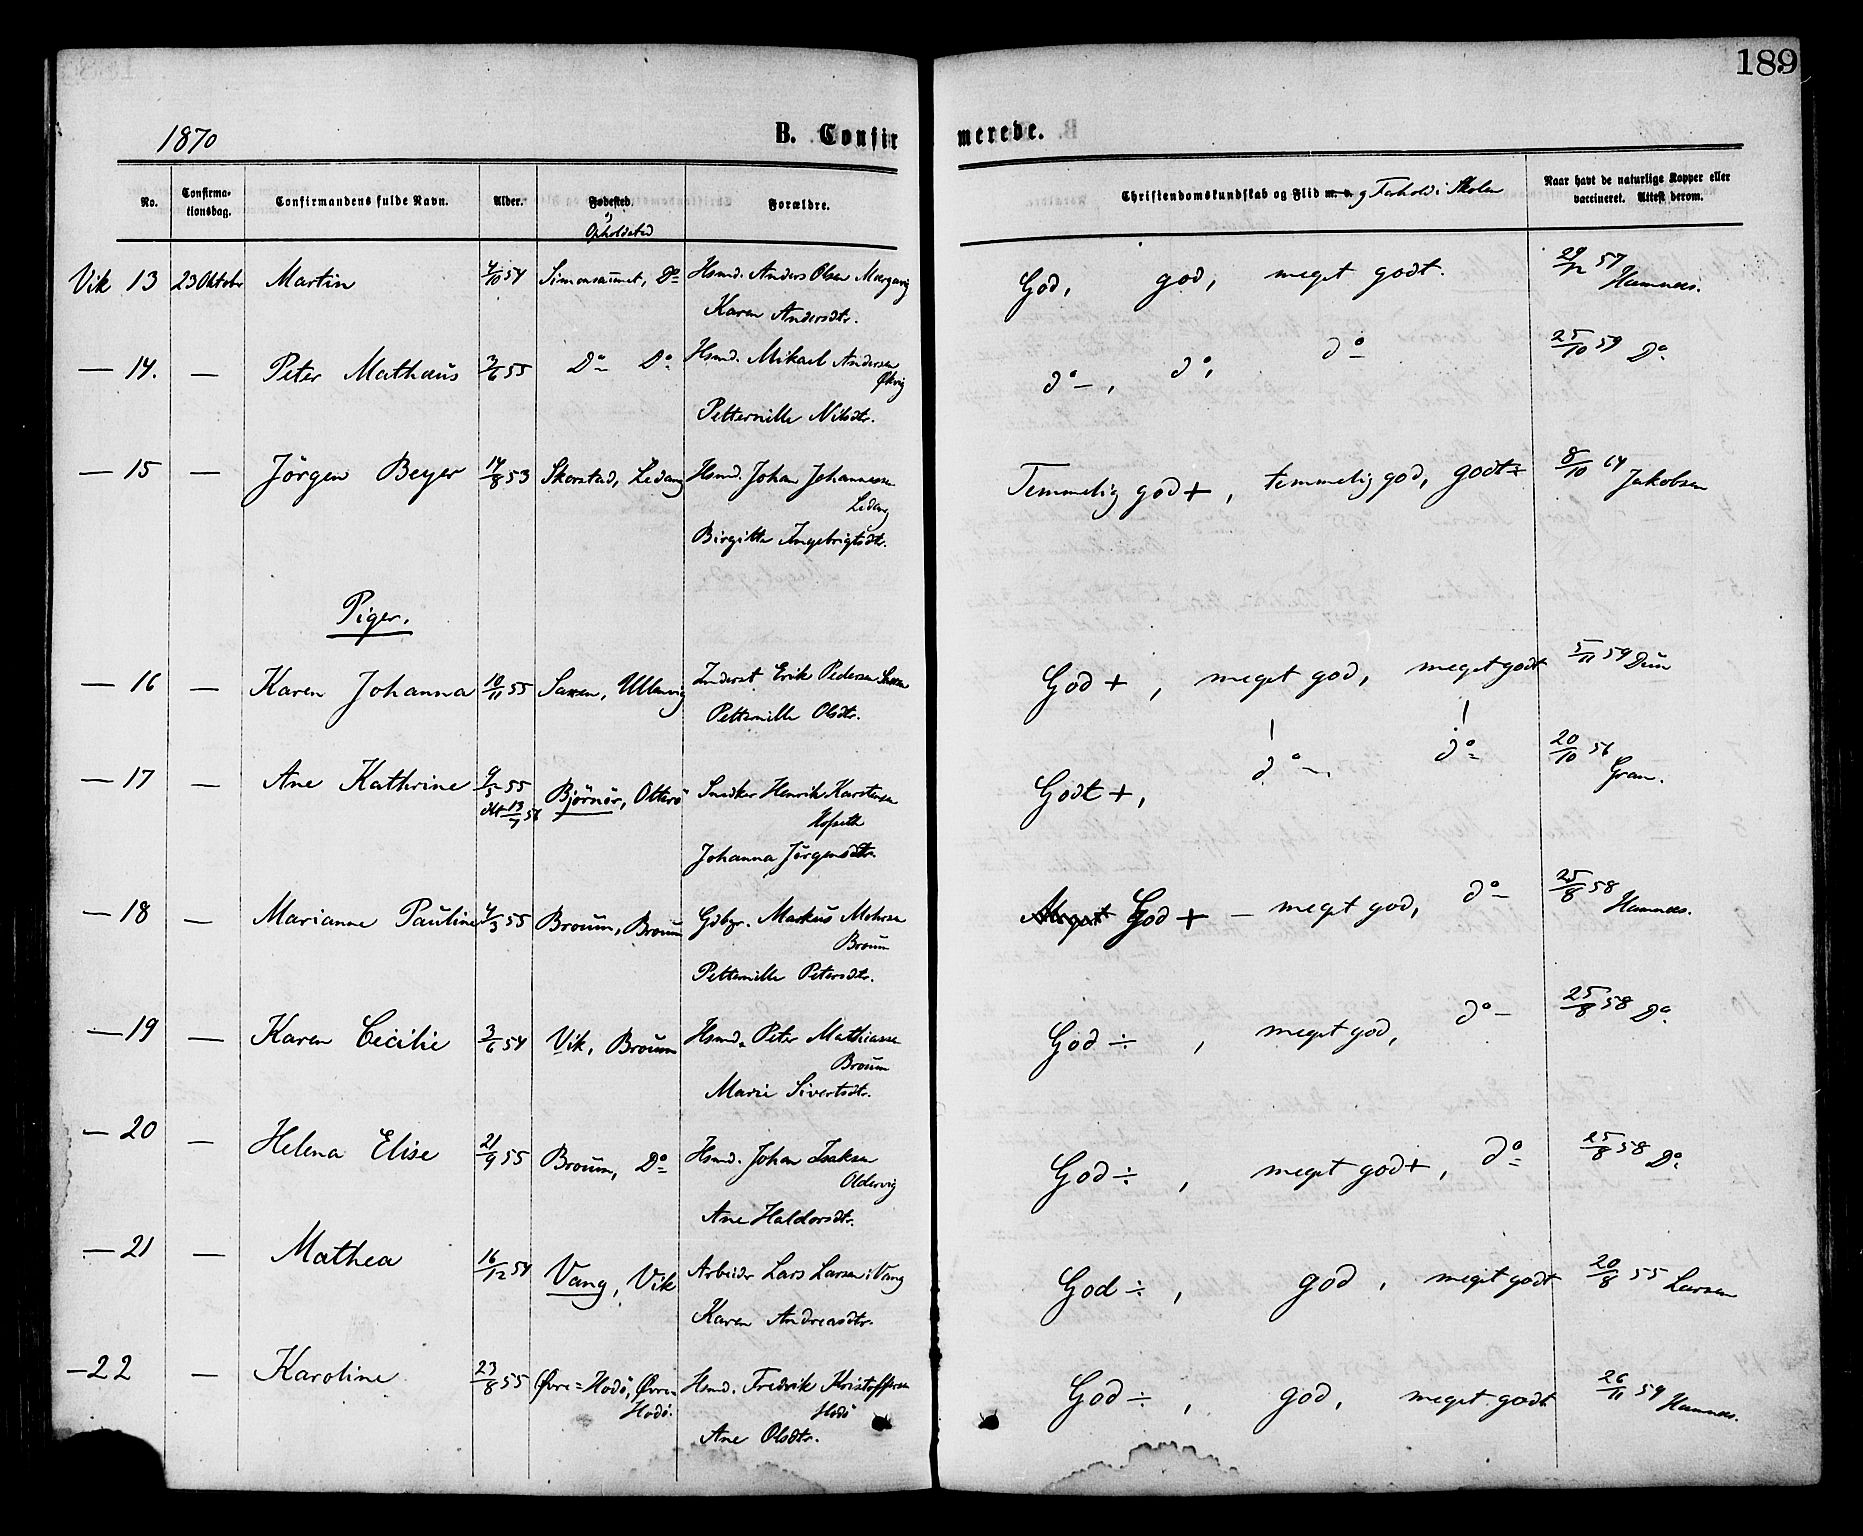 189
1870 B. Confirmerede.
No. Confirmationsdag. Confirmandens fulde Navn. Alder. Fødested. Forældre. Christendomskundskab og Flid m. v. Naar havt de naturlige Kopper eller
og Opholdsted og Forhold i Skolen vaccineret. Attest derom.
Vik 13 23 Oktober Martin 4/10 54 Simonsaunet, Do Hsmd. Anders Olsen God, god, meget godt. 29/12 57 Hamnes.
Karen Andersdtr.
— 14. — Peter Mathæus 3/6 55 Do Do Hsmd. Mikael Andersen do —, do, do 25/10 59 Do
Økvig
Petternille Nilsdtr.
— 15 — Jörgen Beyer 14/8 53 Skorstad, Ledang Hsmd. Johan Johannesen Temmelig god +, temmelig god, godt ÷ 8/10 64 Jakobsen
Ledang
Birgitte Ingebrigtsdtr.
Piger.
— 16 — Karen Johanna 10/11 55 Saxen, Ullenvig Inderst Erik Pedersen Saxen God +, meget god, meget godt 5/11 59 Dun
Petternille Olsdtr.
— 17 — Ane Kathrine 9/5 55 Björnör, Otterö Snedker Henrik Karstensen Godt +, do —. do 20/10 56 Gran.
dbt 13/7 56 Hofseth
Johanna Jörgensdtr.
— 18 — Marianne Pauline 4/3 55 Broum, Broum Gdbgr. Markus Mehrsen Meget God + — meget god, do — 25/8 58 Hamnes.
Broum
Petternille Petersdtr.
— 19 — Karen Cecilie 3/6 54 Vik, Broum Hsmd. Peter Mathiassen God ÷, meget god, do — 25/8 58 Do
Broum
Marie Sivertsdtr.
— 20 — Helena Elise 21/9 55 Broum, Do Hsmd. Johan Isaksen God ÷, meget god +, do 25/8 58 Do
Oldervig
Ane Haldorsdtr.
— 21 — Mathea 16/12 54 Vang, Vik Arbeider Lars Larsen i Vang God ÷, god, meget godt 20/8 55 Larsen
Karen Andreasdtr.
— 22 — Karoline 23/8 55 Øvre-Hodö, Øvre- Hsmd. Fredrik Kristoffersen God ÷, god, meget godt 26/11 59 Hamnes.
Hodö. Hodö
Ane Olsdtr.